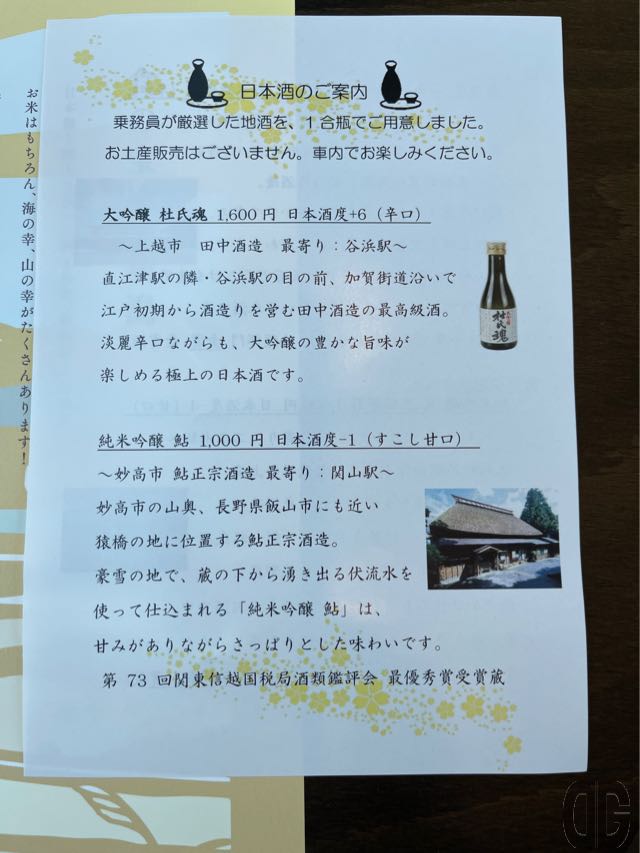 日本酒のご案内
乗務員が厳選した地酒を、1合瓶でご用意しました。
お土産販売はございません。車内でお楽しみください。
大吟醸 杜氏魂 1,600円 日本酒度+6（辛口）
～上越市 田中酒造 最寄り：谷浜駅～
直江津駅の隣・谷浜駅の目の前、加賀街道沿いで
江戸初期から酒造りを営む田中酒造の最高級酒。
淡麗辛口ながらも、大吟醸の豊かな旨味が
楽しめる極上の日本酒です。
杜氏魂
純米吟醸 鮎 1,000 円 日本酒度−1（すこし甘口）
～妙高市 鮎正宗酒造 最寄り：関山駅～
妙高市の山奥、長野県飯山市にも近い
猿橋の地に位置する鮎正宗酒造。
豪雪の地で、蔵の下から湧き出る伏流水を
使って仕込まれる「純米吟醸 鮎」は、
甘みがありながらさっぱりとした味わいです。
第 73 回関東信越国税局酒類鑑評会 最優秀賞受賞蔵
お米はもちろん、海の幸、山の幸がたくさんあります！